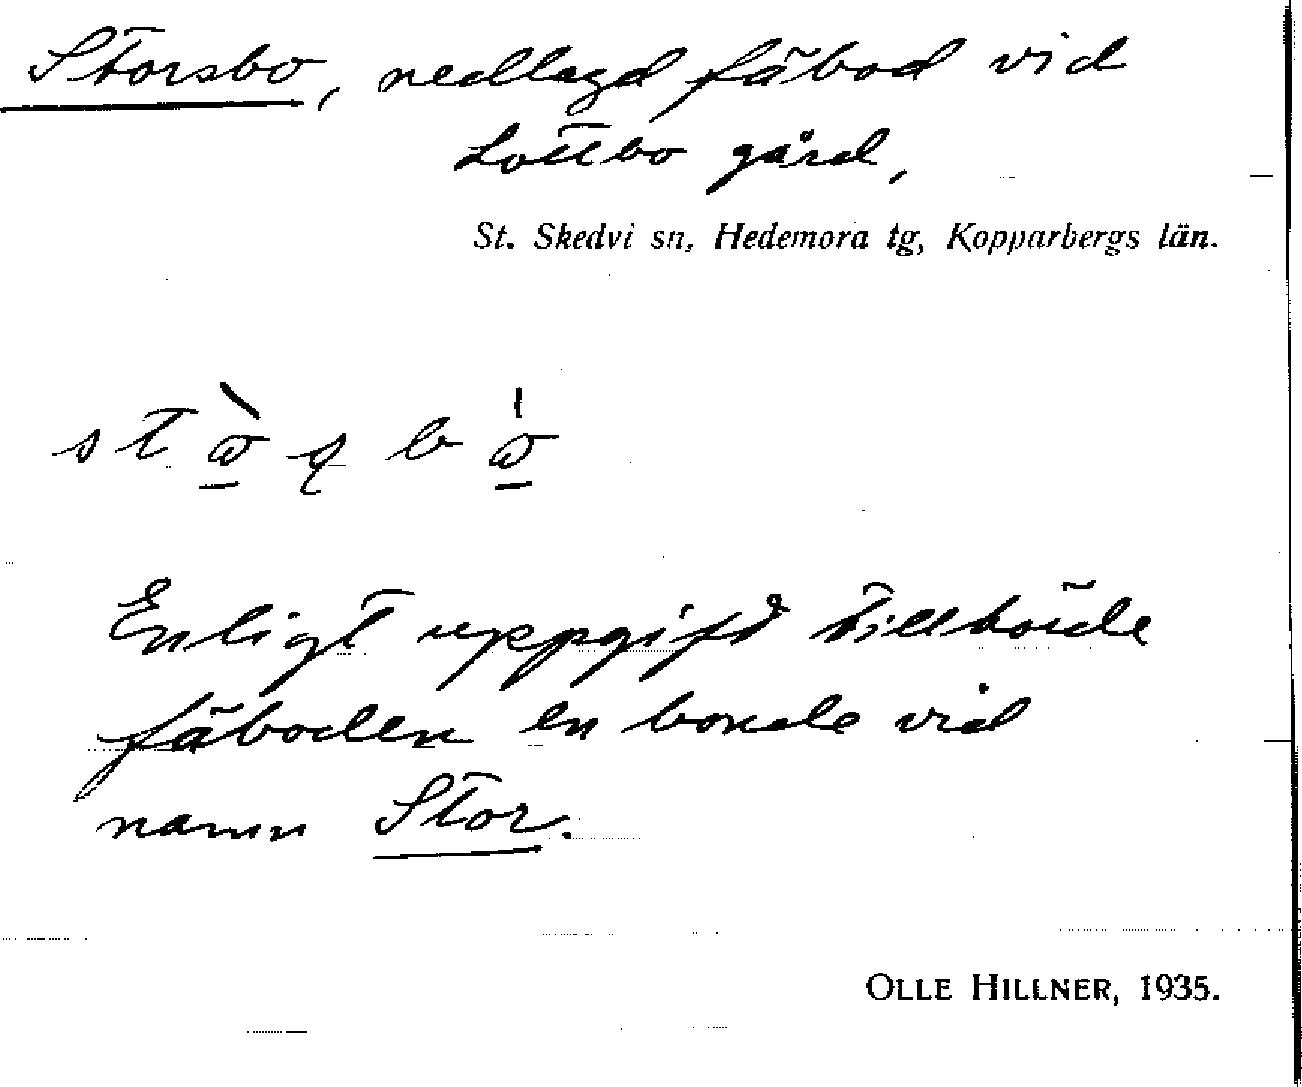 Storsbo, nedlagd fäbod vid
Lottbo gård,
St. Skedvi sn, Hedemora tg, Kopparbergs län.
Enligt uppgift tillhörde
fäboden en bonde vid
namn Stor.
OLLE HILLNER, 1935.